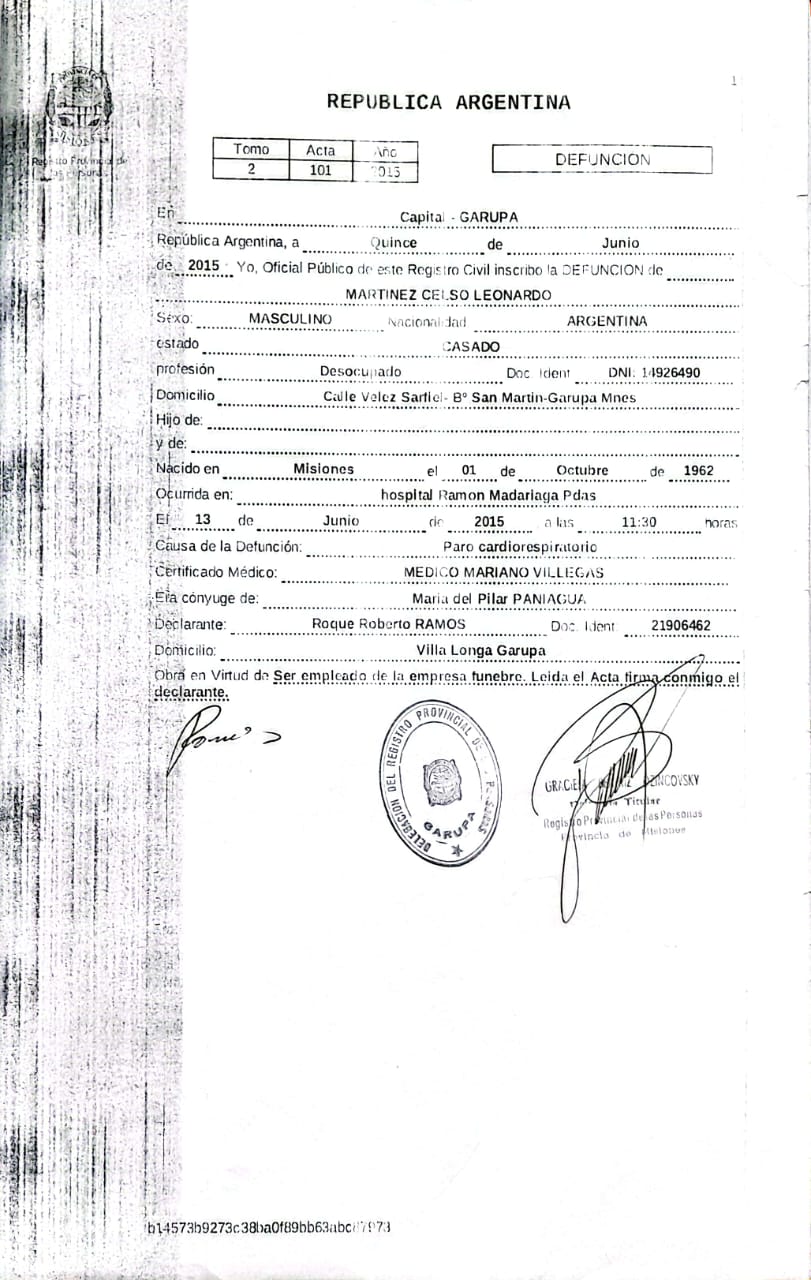 1
REPUBLICA ARGENTINA
Tomo Acta Año
2 101 2015
DEFUNCION
Registro Provincial de
las Personas
En Capital - GARUPA
República Argentina, a Quince de Junio
de 2015 Yo, Oficial Público de este Registro Civil inscribo la DEFUNCION de
MARTINEZ CELSO LEONARDO
Sexo: MASCULINO Nacionalidad ARGENTINA
estado CASADO
profesión Desocupado Doc. Ident DNI: 14926490
Domicilio Calle Velez Sarfiel- Bº San Martin-Garupa Mnes
Hijo de:
y de:
Nacido en Misiones el 01 de Octubre de 1962
Ocurrida en: hospital Ramon Madariaga Pdas
El 13 de Junio de 2015 a las 11:30 horas
Causa de la Defunción: Paro cardiorespiratorio
Certificado Médico: MEDICO MARIANO VILLEGAS
Era cónyuge de: Maria del Pilar PANIAGUA
Declarante: Roque Roberto RAMOS Doc. Ident 21906462
Domicilio: Villa Longa Garupa
Obra en Virtud de Ser empleado de la empresa funebre. Leida el Acta firma conmigo el
declarante.
DELEGACION DEL REGISTRO PROVINCIAL DE LAS PERSONAS
GARUPA
Titular
Registro Provincial de las Personas
Provincia de Misiones